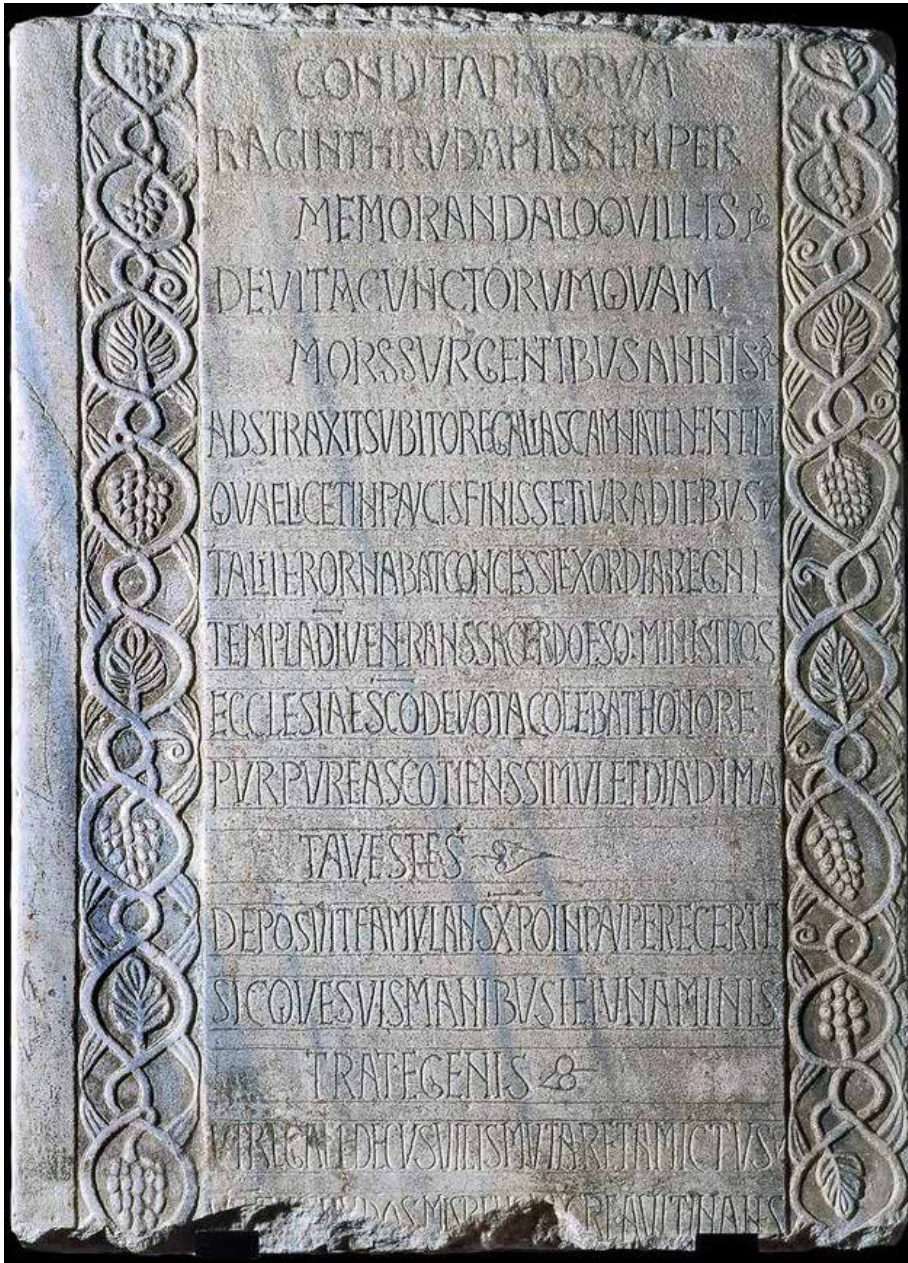 CONDITA PRIORVM
RAGINTHRVDA PIIS SEMPER
MEMORANDA LOQVILLIS
DE VITA CVNCTORVM QVAM
MORS SVRGENTIBVS ANNIS
ABSTRAXIT SVBITO REGALIA SCAMNA TENENTEM
QVAE LICET IN PAVCIS FINISSET IVRA DIEBVS
TALITER ORNABAT CONCESSI EXORDIA REGNI
TEMPLA DI VENERANS SACERDOTESQ· MINISTROS
ECCLESIAE SCO DEVOTA COLEBAT HONORE
PVRPVREAS COTIENS SIMVL ET DIADIMA
TA VESTES
DEPOSVIT FAMVLANS XPO IN PAVPERE CERTE
SICQVE SVIS MANIBVS IEIVNA MINIS
TRAT EGENIS
VT REGALE DECVS VILIS MVTARET AMICTVS